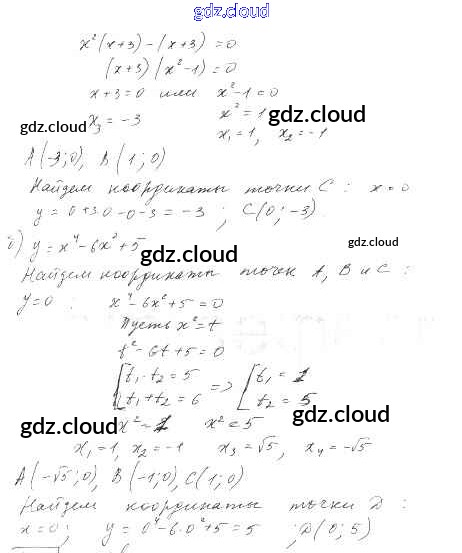 gdz.cloud
x²(x+3)-(x+3)=0
(x+3)(x²-1)=0
x+3=0 или x²-1=0
gdz.cloud x₃=-3 x²=1 gdz.cloud
x₁=1, x₂=-1
A(-3;0), B(1;0)
Найдем координаты точки C: x=0
y=0+3·0-0-3=-3; C(0;-3).
б) y=x⁴-6x²+5 gdz.cloud
gdz.cloud
Найдем координаты точек A, B и C:
y=0: x⁴-6x²+5=0
Пусть x²=t
t²-6t+5=0
[t₁·t₂=5 => [t₁=1
t₁+t₂=6 t₂=5
gdz.cloud x²=1 x²=5 gdz.cloud
x₁=1, x₂=-1 x₃=√5, x₄=-√5
A(-√5;0), B(-1;0), C(1;0)
gdz.cloud
Найдем координаты точки D:
x=0; y=0⁴-6·0²+5=5; D(0;5)
gdz.cloud